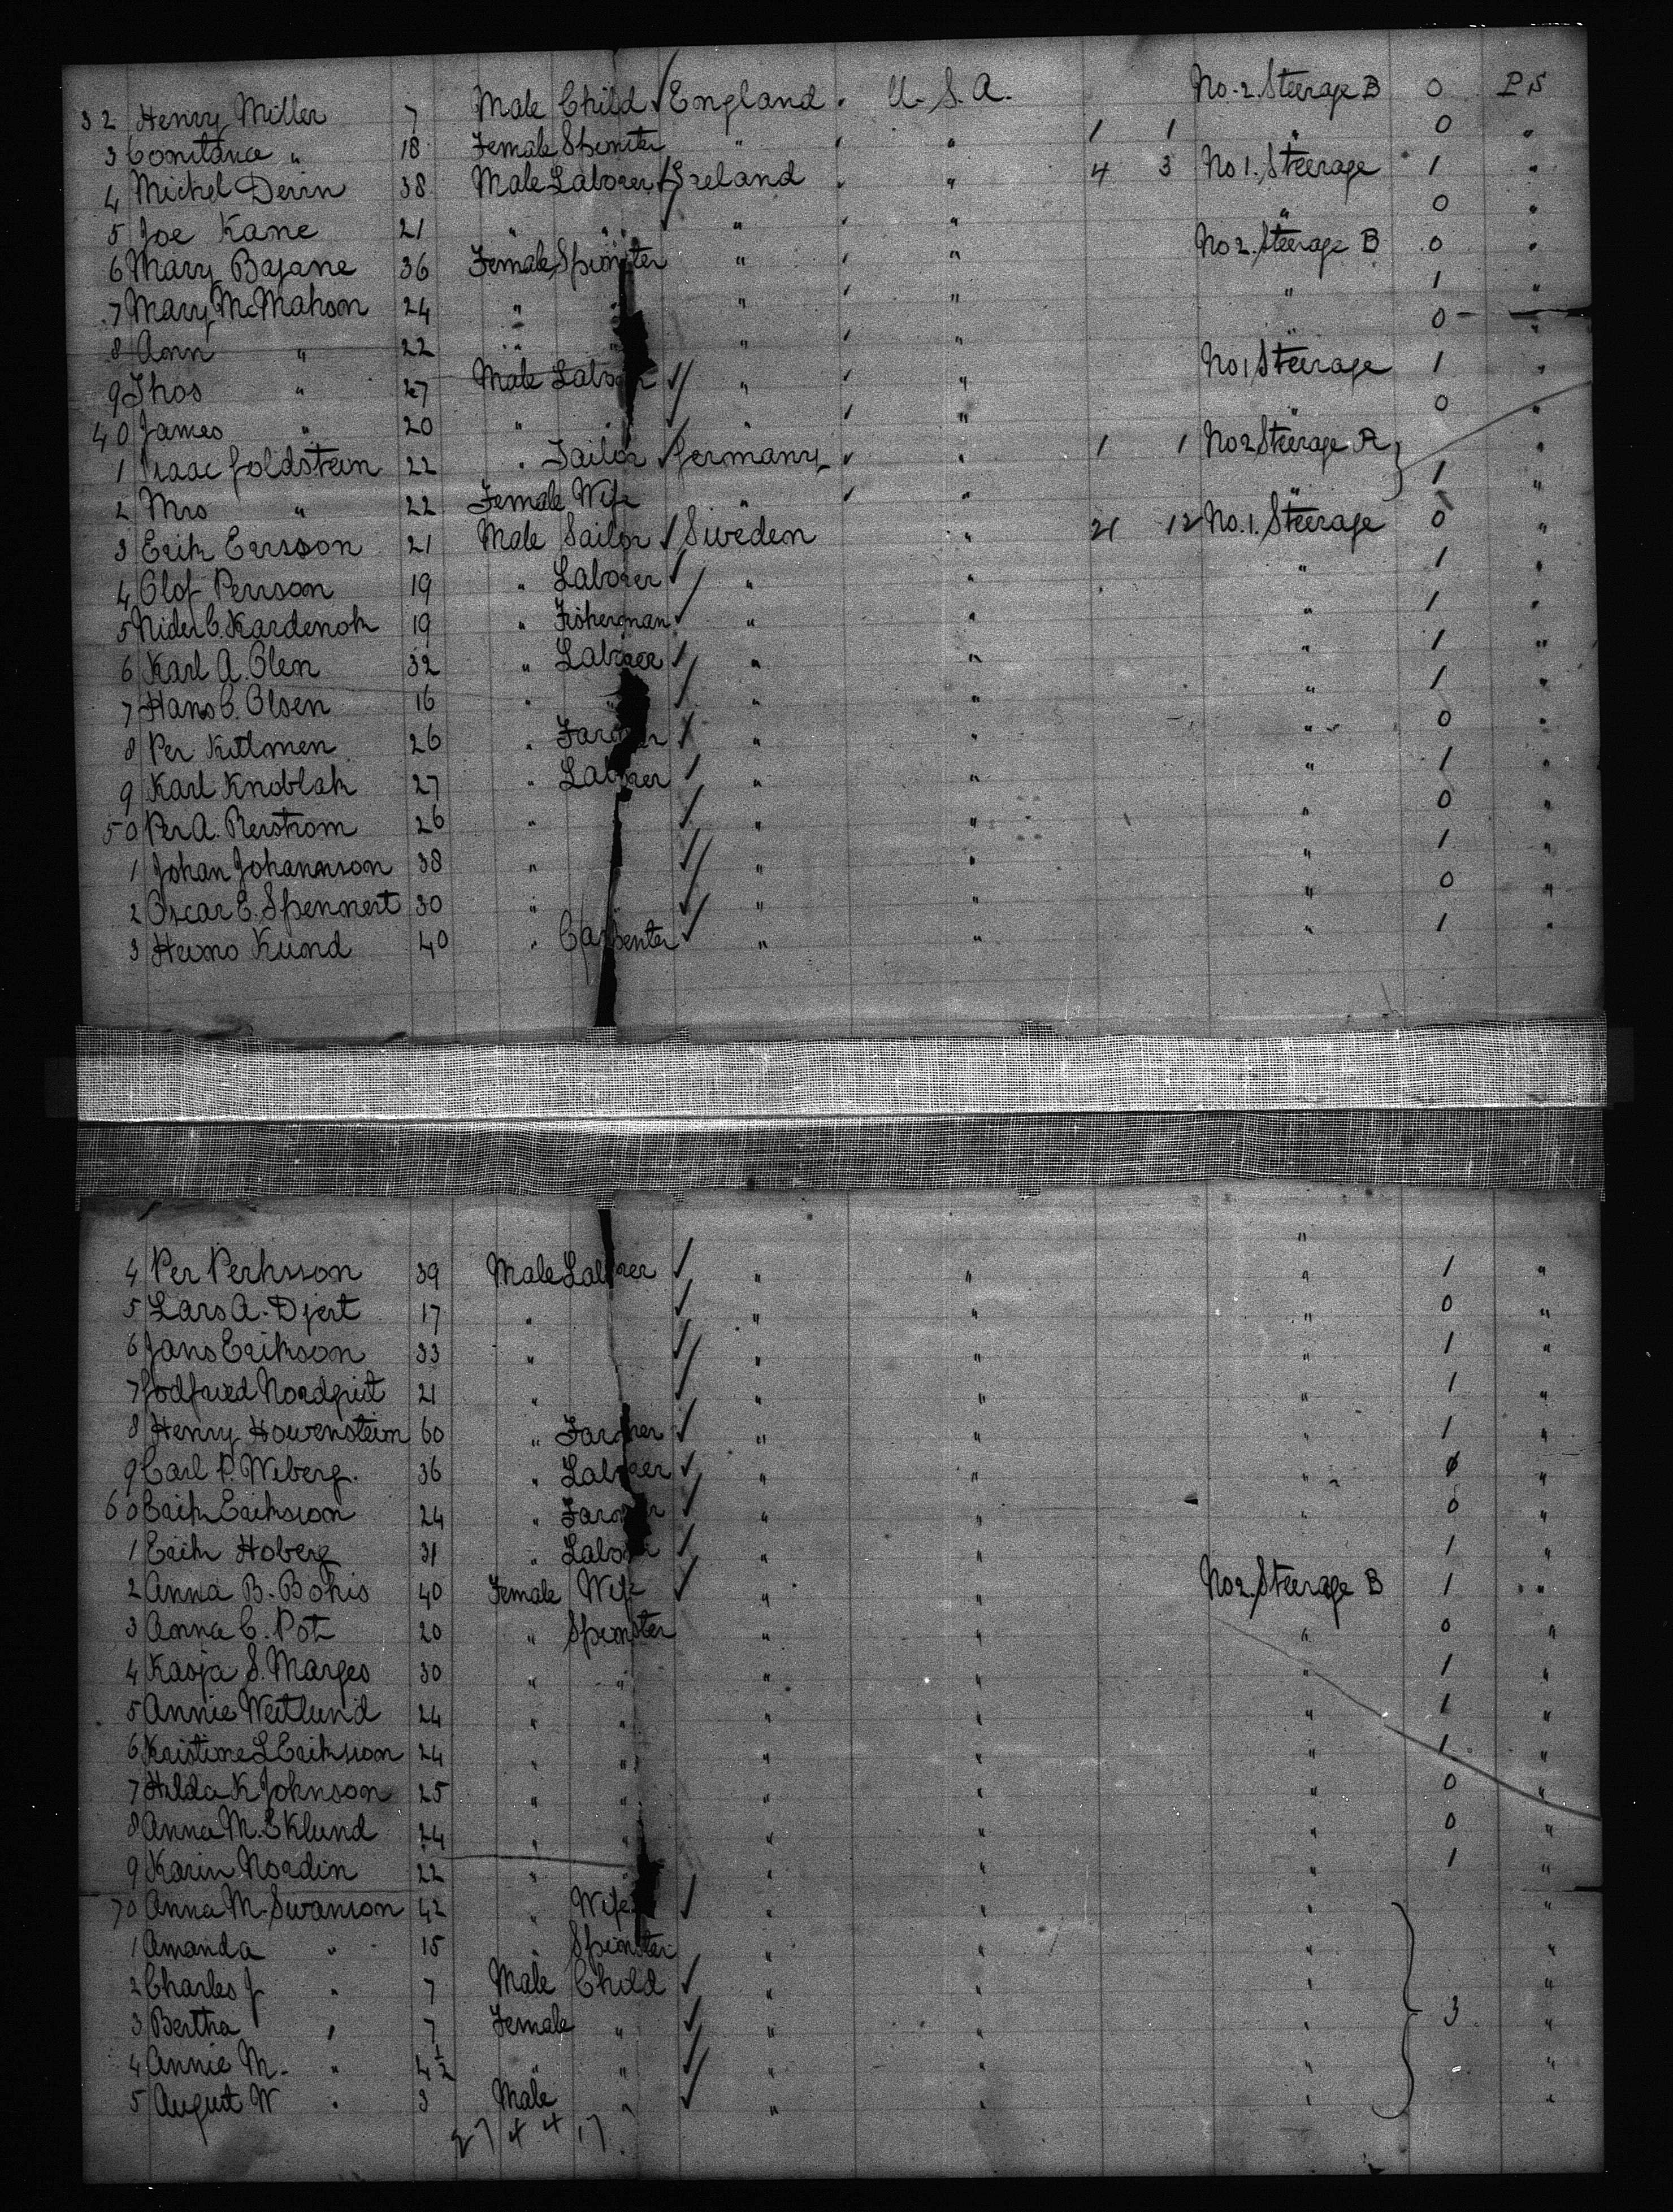 32 Henry Miller 7 Male Child ✓ England U.S.A. No. 2. Steerage B 0 P S
3 Constance " 18 Female Spinster " " 1 1 " 0 "
4 Michel Devin 38 Male Laborer ✓ Ireland " 4 3 No 1. Steerage 1 "
5 Joe Kane 21 " " " " " 0 "
6 Mary Bajane 36 Female Spinster " " No 2. Steerage B 0 "
7 Mary McMahon 24 " " " " " 1 "
8 Ann " 22 " " " " " 0 "
9 Thos " 27 Male Laborer ✓ " " No 1 Steerage 1 "
40 James " 20 " " ✓ " " " 0 "
1 Isaac Goldstein 22 " Tailor ✓ Germany " 1 1 No 2 Steerage A "
2 Mrs " 22 Female Wife " " " 1 "
3 Erik Ersson 21 Male Sailor ✓ Sweden " 21 12 No. 1. Steerage 0 "
4 Olof Persson 19 " Laborer ✓ " " " 1 "
5 19 " Fisherman ✓ " " " 1 "
6 Karl A. Olen 32 " Laborer ✓ " " " 1 "
7 Hans C. Olsen 16 " ✓ " " " 1 "
8 Per 26 " Farmer ✓ " " " 0 "
9 Karl Knoblah 27 " Laborer ✓ " " " 1 "
50 Per A. Berstrom 26 " ✓ " " " 0 "
1 Johan Johannson 38 " ✓ " " " 1 "
2 Oscar E. Spennert 30 " ✓ " " " 0 "
3 Kund 40 " Carpenter ✓ " " " 1 "
"
4 Per Perhsson 39 Male Laborer ✓ " " " 1 "
5 Lars A. Djert 17 " ✓ " " " 0 "
6 Jans Erikson 33 " ✓ " " " 1 "
7 Godfried Nordqvist 21 " ✓ " " " 1 "
8 Henry Howenstein 60 " Farmer ✓ " " " 1 "
9 Carl P. Wiberg. 36 " Laborer ✓ " " " 0 "
60 Erik Eriksson 24 " Farmer ✓ " " " 0 "
1 Erik Hoberg 31 " Laborer ✓ " " " 1 "
2 Anna B. Bohis 40 Female Wife ✓ " " No 2. Steerage B 1 "
3 Anna C. Pot 20 " Spinster " " " 0 "
4 Kasja S. Marges 30 " " " " " 1 "
5 Annie Westlund 24 " " " " " 1 "
6 Kristine L Eriksson 24 " " " " " 1 "
7 Hilda K Johnson 25 " " " " " 0 "
8 Anna M. Eklund 24 " " " " " 0 "
9 Karin Nordin 22 " " " " " 1 "
70 Anna M. Swanson 42 " Wife ✓ " " " "
1 Amanda " 15 " Spinster " " " "
2 Charles J " 7 Male Child ✓ " " " "
3 Bertha " 7 Female " ✓ " " " 3 "
4 Annie M. " 4½ " " ✓ " " " "
5 August W " 3 Male " ✓ " " " "
27 4 4 17